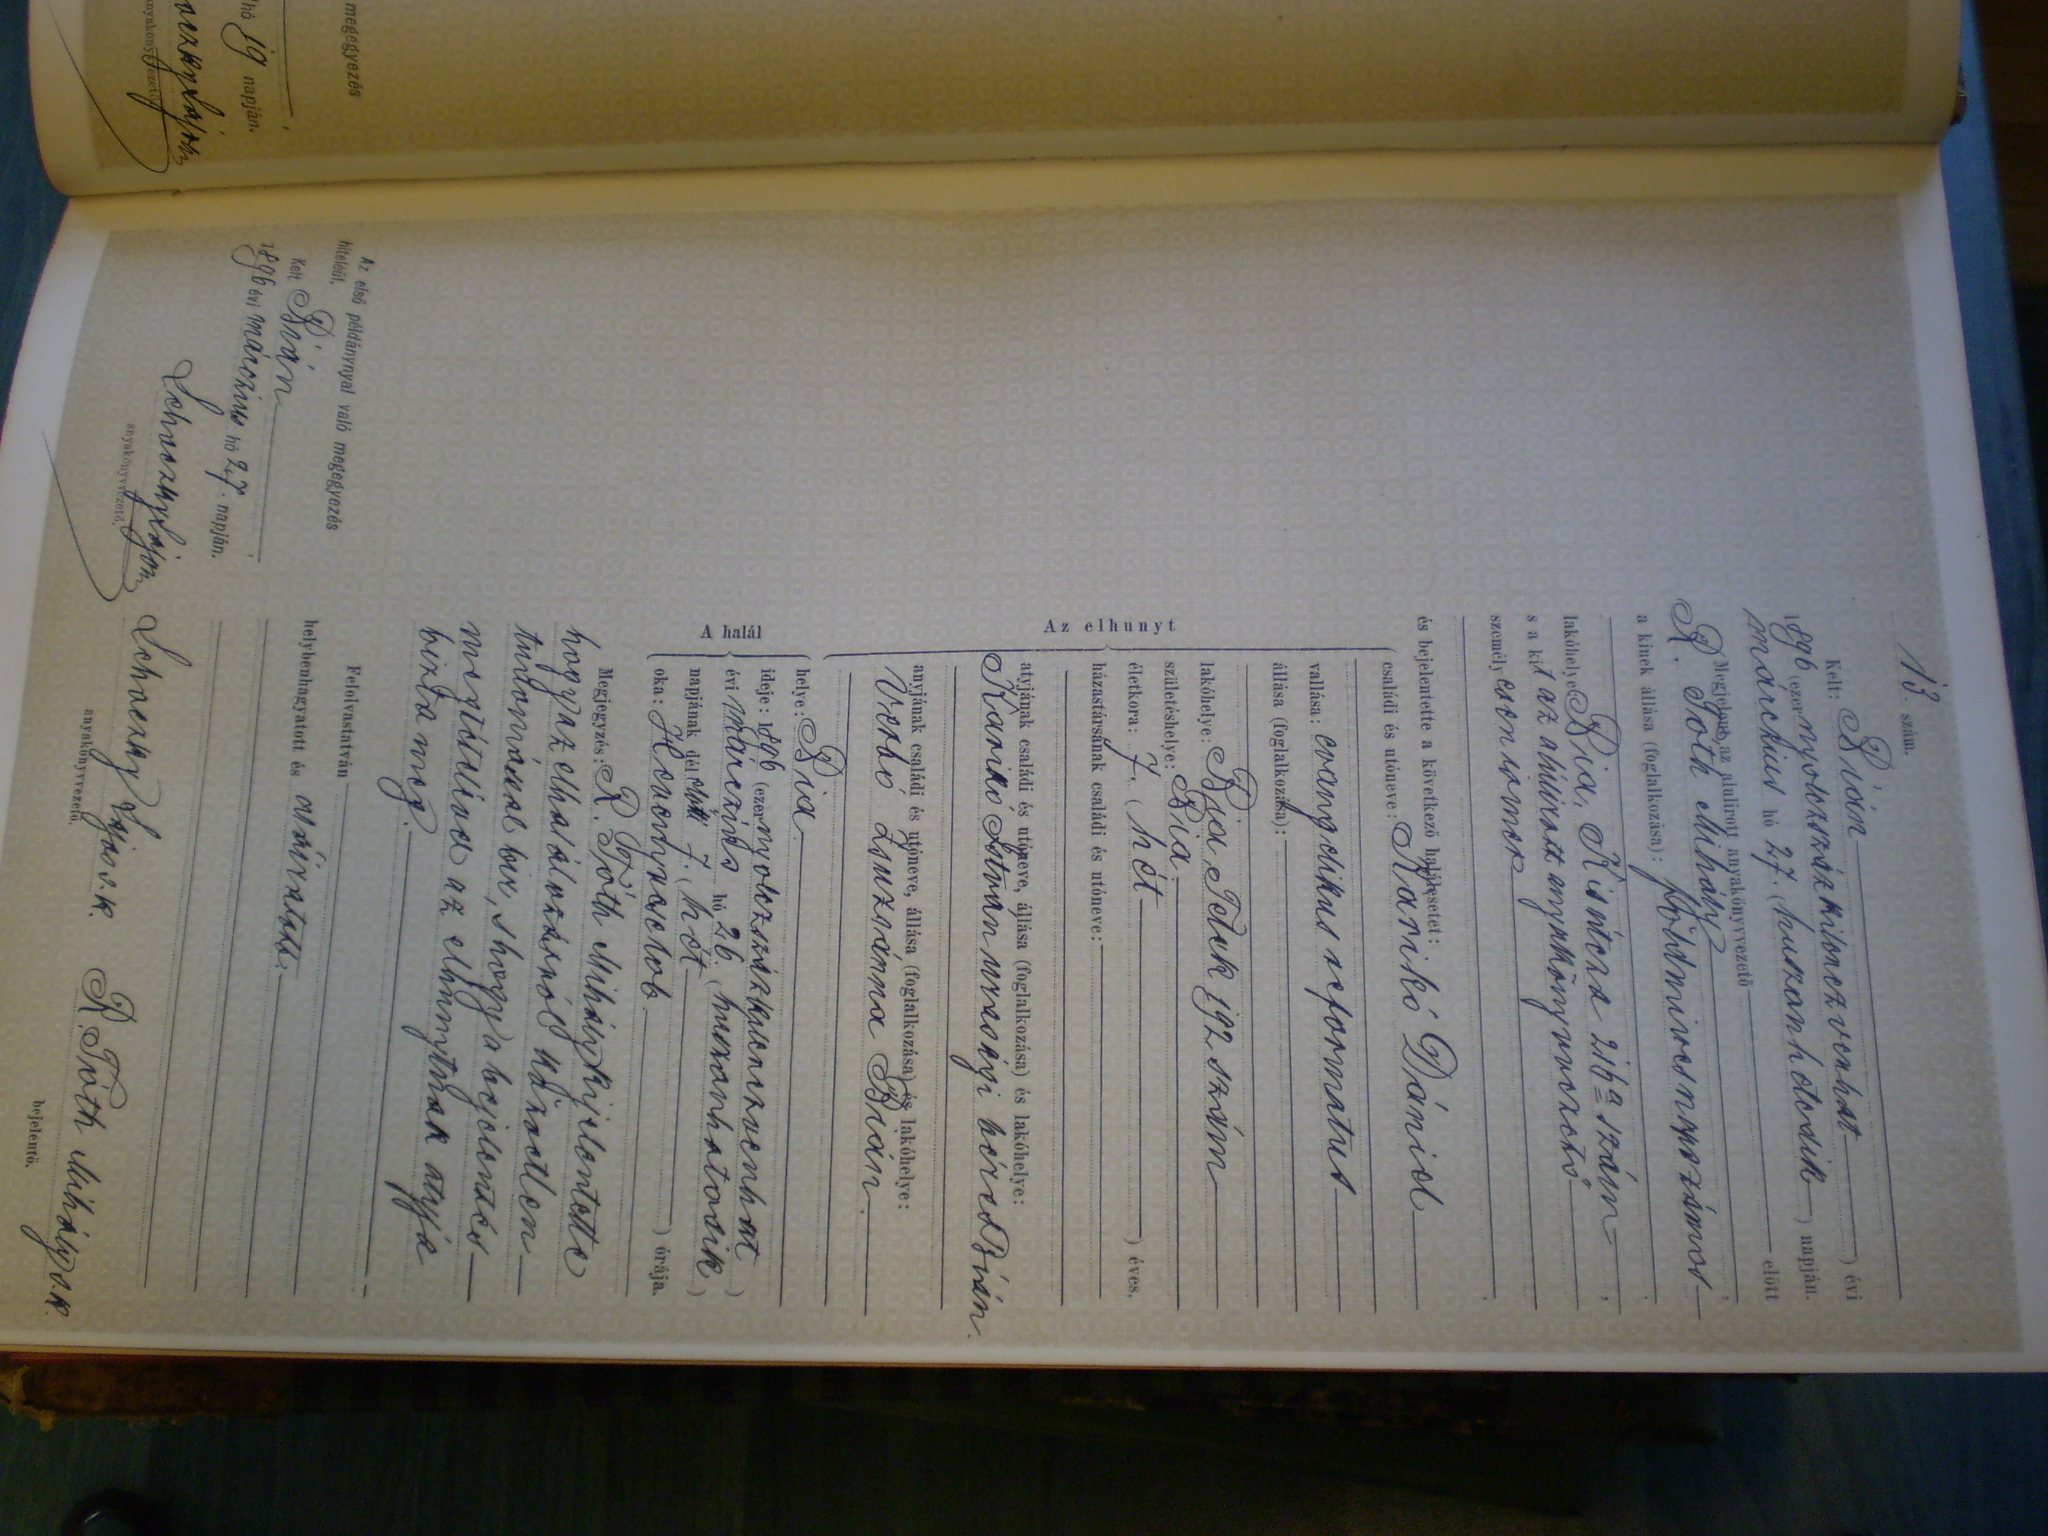 megegyezés
hó 19 napján.
anyakönyvvezető.
13. szám.
Kelt: Bián
1896 (ezer nyolczszáz kilenczvenhat) évi
márczius hó 27. (huszonhetedik) napján.
Megjelent az alulirott anyakönyvvezető előtt
R. Tóth Mihály
a kinek állása (foglalkozása): földmíves napszámos
lakóhelye Bia, Kismoza 216a szám
s a kit az alulirott anyakönyvvezető
személyesen ismer
és bejelentette a következő halálesetet:
Az elhunyt
családi és utóneve: Karikó Dániel
vallása: evangelikus reformatus
állása (foglalkozása):
lakóhelye: Bia Telek 192 szám
születéshelye: Bia
életkora: 7. (hét) éves,
házastársának családi és utóneve:
atyjának családi és utóneve, állása (foglalkozása) és lakóhelye:
Karikó István urasági béres Bián.
anyjának családi és utóneve, állása (foglalkozása) és lakóhelye:
Verbó Zsuzsánna Bián.
A halál
helye: Bia.
ideje: 1896 (ezer nyolczszázkilenczvenhat)
évi márczius hó 26. (huszonhatodik)
napjának dél előtti 7. (hét) órája.
oka: Roncsoló toroklob
Megjegyzés: R. Tóth Mihály kijelentette
hogy az elhalálozásról közvetlen
tudomással bir, s hogy a bejelentés
megtételével az elhunytnak atyja
bizta meg.
Felolvastatván
helybenhagyatott és aláiratott.
anyakönyvvezető.
R. Tóth Mihály s.k.
bejelentő.
Az első példánynyal való megegyezés
hiteléül.
Kelt Bián
1896 évi márczius hó 27. napján.
anyakönyvvezető.